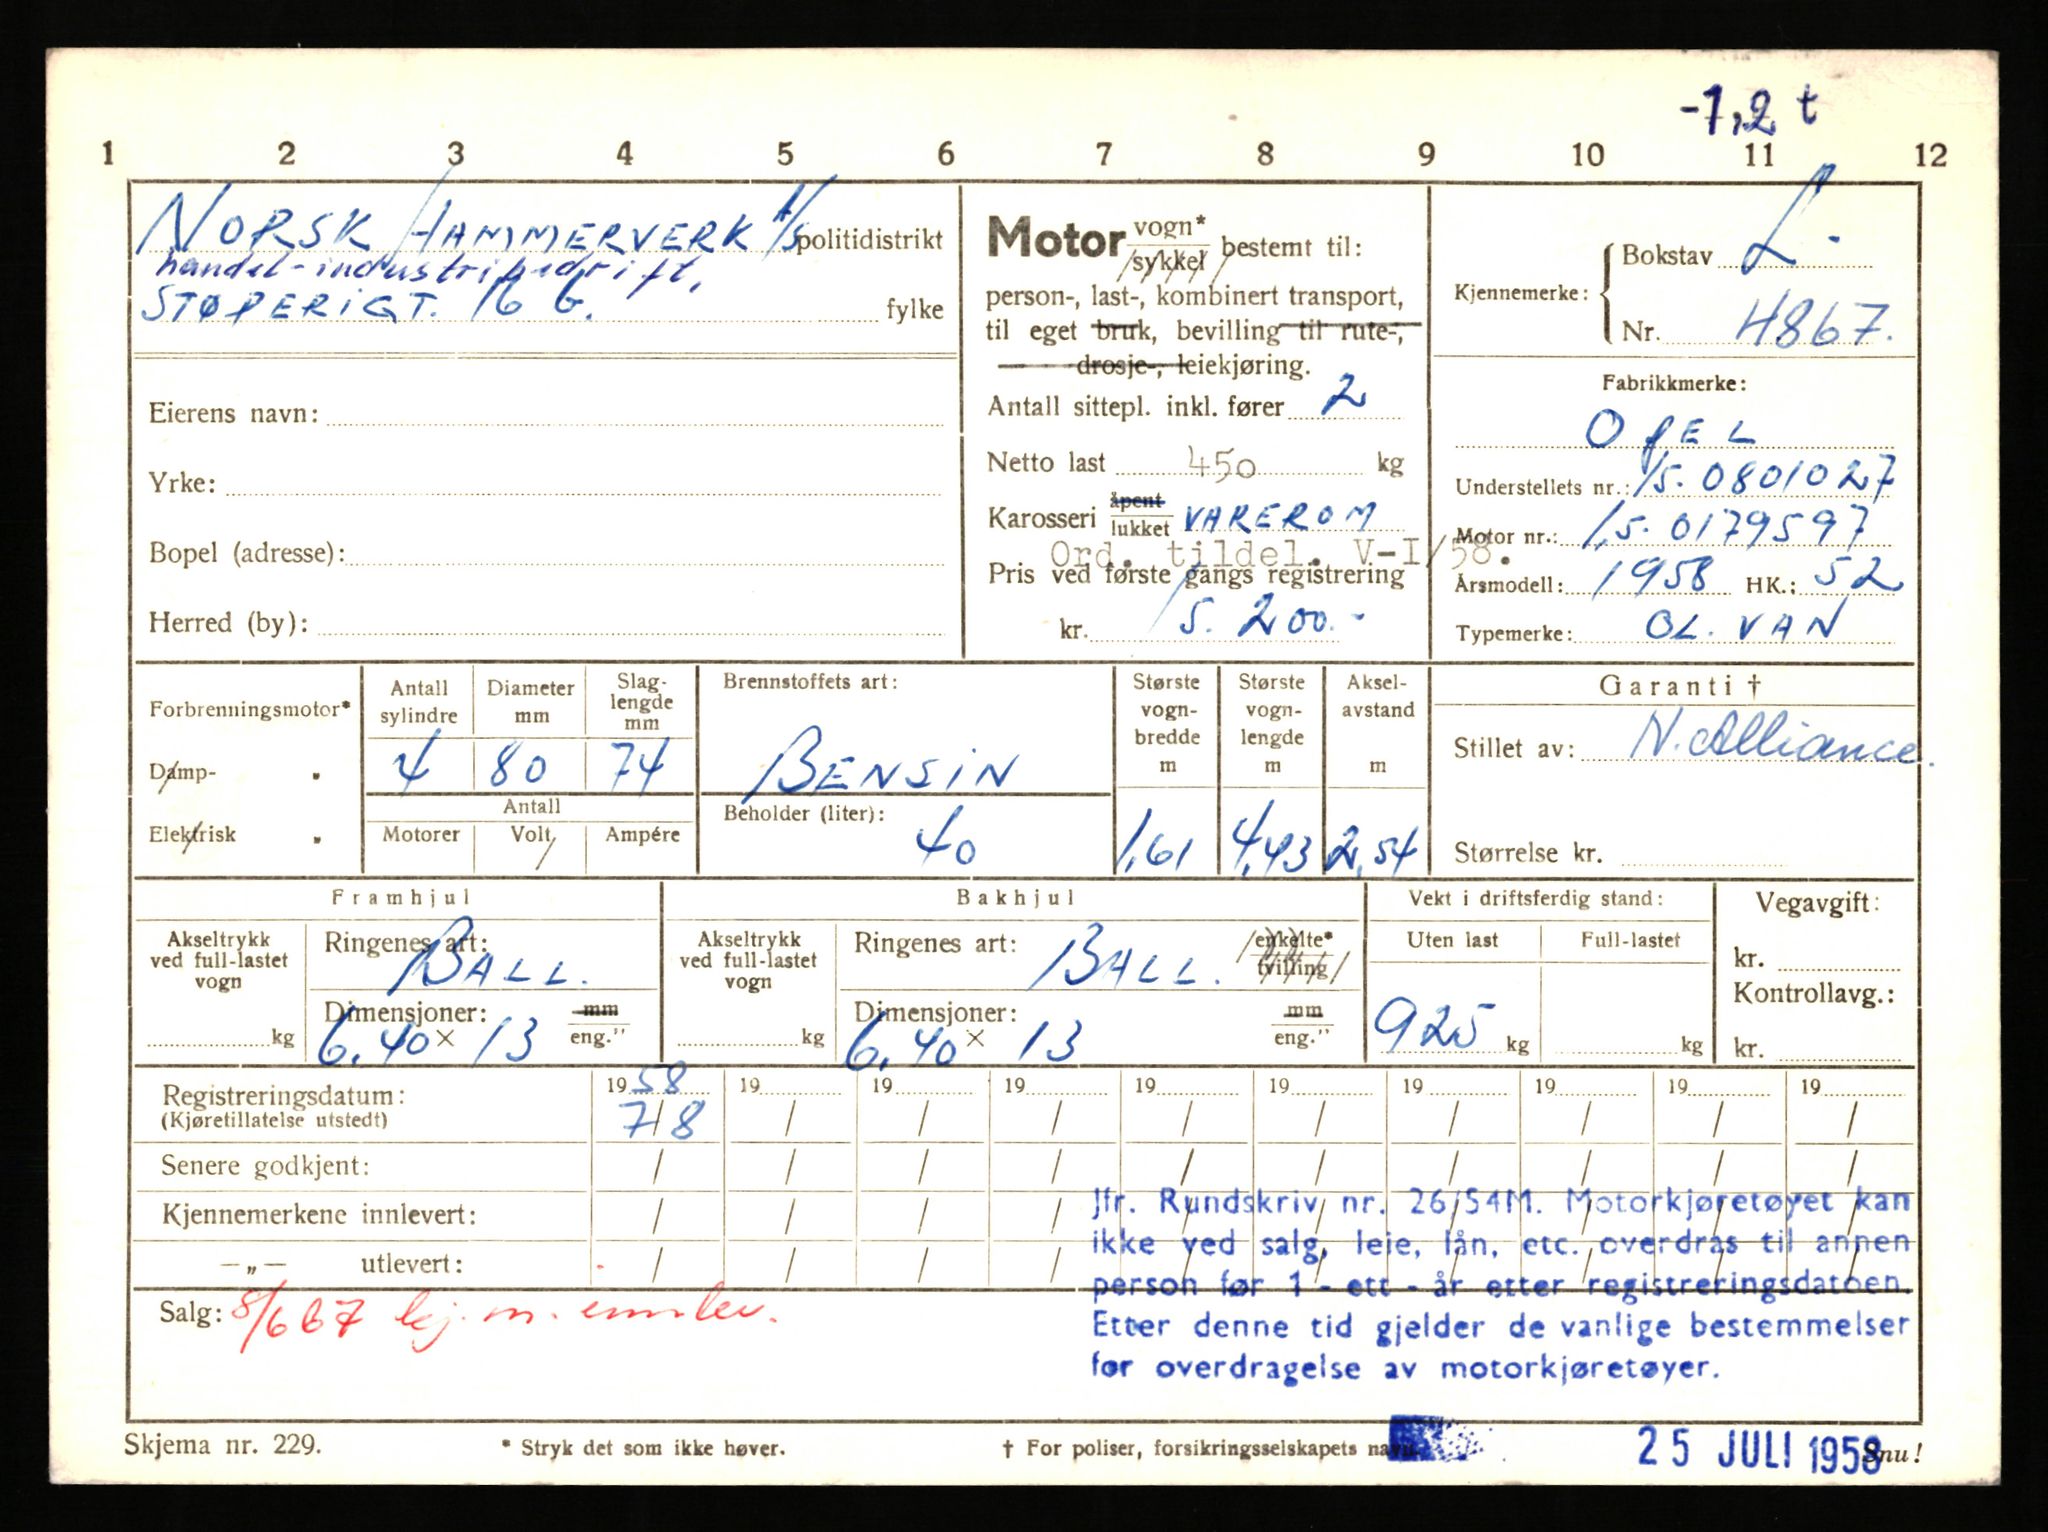 -1,2 t
1 2 3 4 5 6 7 8 9 10 11 12
NORSK HAMMERVERK A/S politidistrikt
handel-industribedrift,
STØPERIGT. 16 b. fylke
Eierens navn:
Yrke:
Bopel (adresse):
Herred (by):
Motor vogn* / sykkel bestemt til:
person-, last-, kombinert transport,
til eget bruk, bevilling til rute-,
drosje-, leiekjøring.
Antall sittepl. inkl. fører 2
Netto last 450 kg
Karosseri åpent / lukket VAREROM
Ord. tildel. V-I/58.
Pris ved første gangs registrering
kr. 15.200.-
Kjennemerke: Bokstav L-
Nr. 4867.
Fabrikkmerke:
OPEL
Understellets nr.: 1,5-0801027
Motor nr.: 1,5-0179597
Årsmodell: 1958 HK.: 52
Typemerke: OL. VAN
Forbrenningsmotor*
Damp- "
Elektrisk "
Antall sylindre 4
Diameter mm 80
Slaglengde mm 74
Antall
Motorer Volt Ampére
Brennstoffets art:
BENSIN
Beholder (liter):
40
Største vognbredde m 1,61
Største vognlengde m 4,43
Akselavstand m 2,54
Garanti †
Stillet av: N. Alliance.
Størrelse kr.
Framhjul
Akseltrykk ved full-lastet vogn
kg
Ringenes art:
BALL.
Dimensjoner: mm / eng."
6.40 × 13
Bakhjul
Akseltrykk ved full-lastet vogn
kg
Ringenes art: enkelte* / tvilling
BALL.
Dimensjoner: mm / eng."
6.40 × 13
Vekt i driftsferdig stand:
Uten last Full-lastet
925 kg kg
Vegavgift:
kr.
Kontrollavg.:
kr.
Registreringsdatum: 1958 19 19 19 19 19 19 19 19 19
(Kjøretillatelse utstedt) 7/8 / / / / / / / / /
Senere godkjent: / / / / / / / / / /
Kjennemerkene innlevert: / / / / / / / / / /
—„— utlevert: / / / / / / / / / /
Salg: 8/6 67 kj. m. innlev.
Jfr. Rundskriv nr. 26/54M. Motorkjøretøyet kan
ikke ved salg, leie, lån, etc. overdras til annen
person før 1 - ett - år etter registreringsdatoen.
Etter denne tid gjelder de vanlige bestemmelser
for overdragelse av motorkjøretøyer.
Skjema nr. 229. * Stryk det som ikke høver. † For poliser, forsikringsselskapets navn. 25 JULI 1958 Snu!